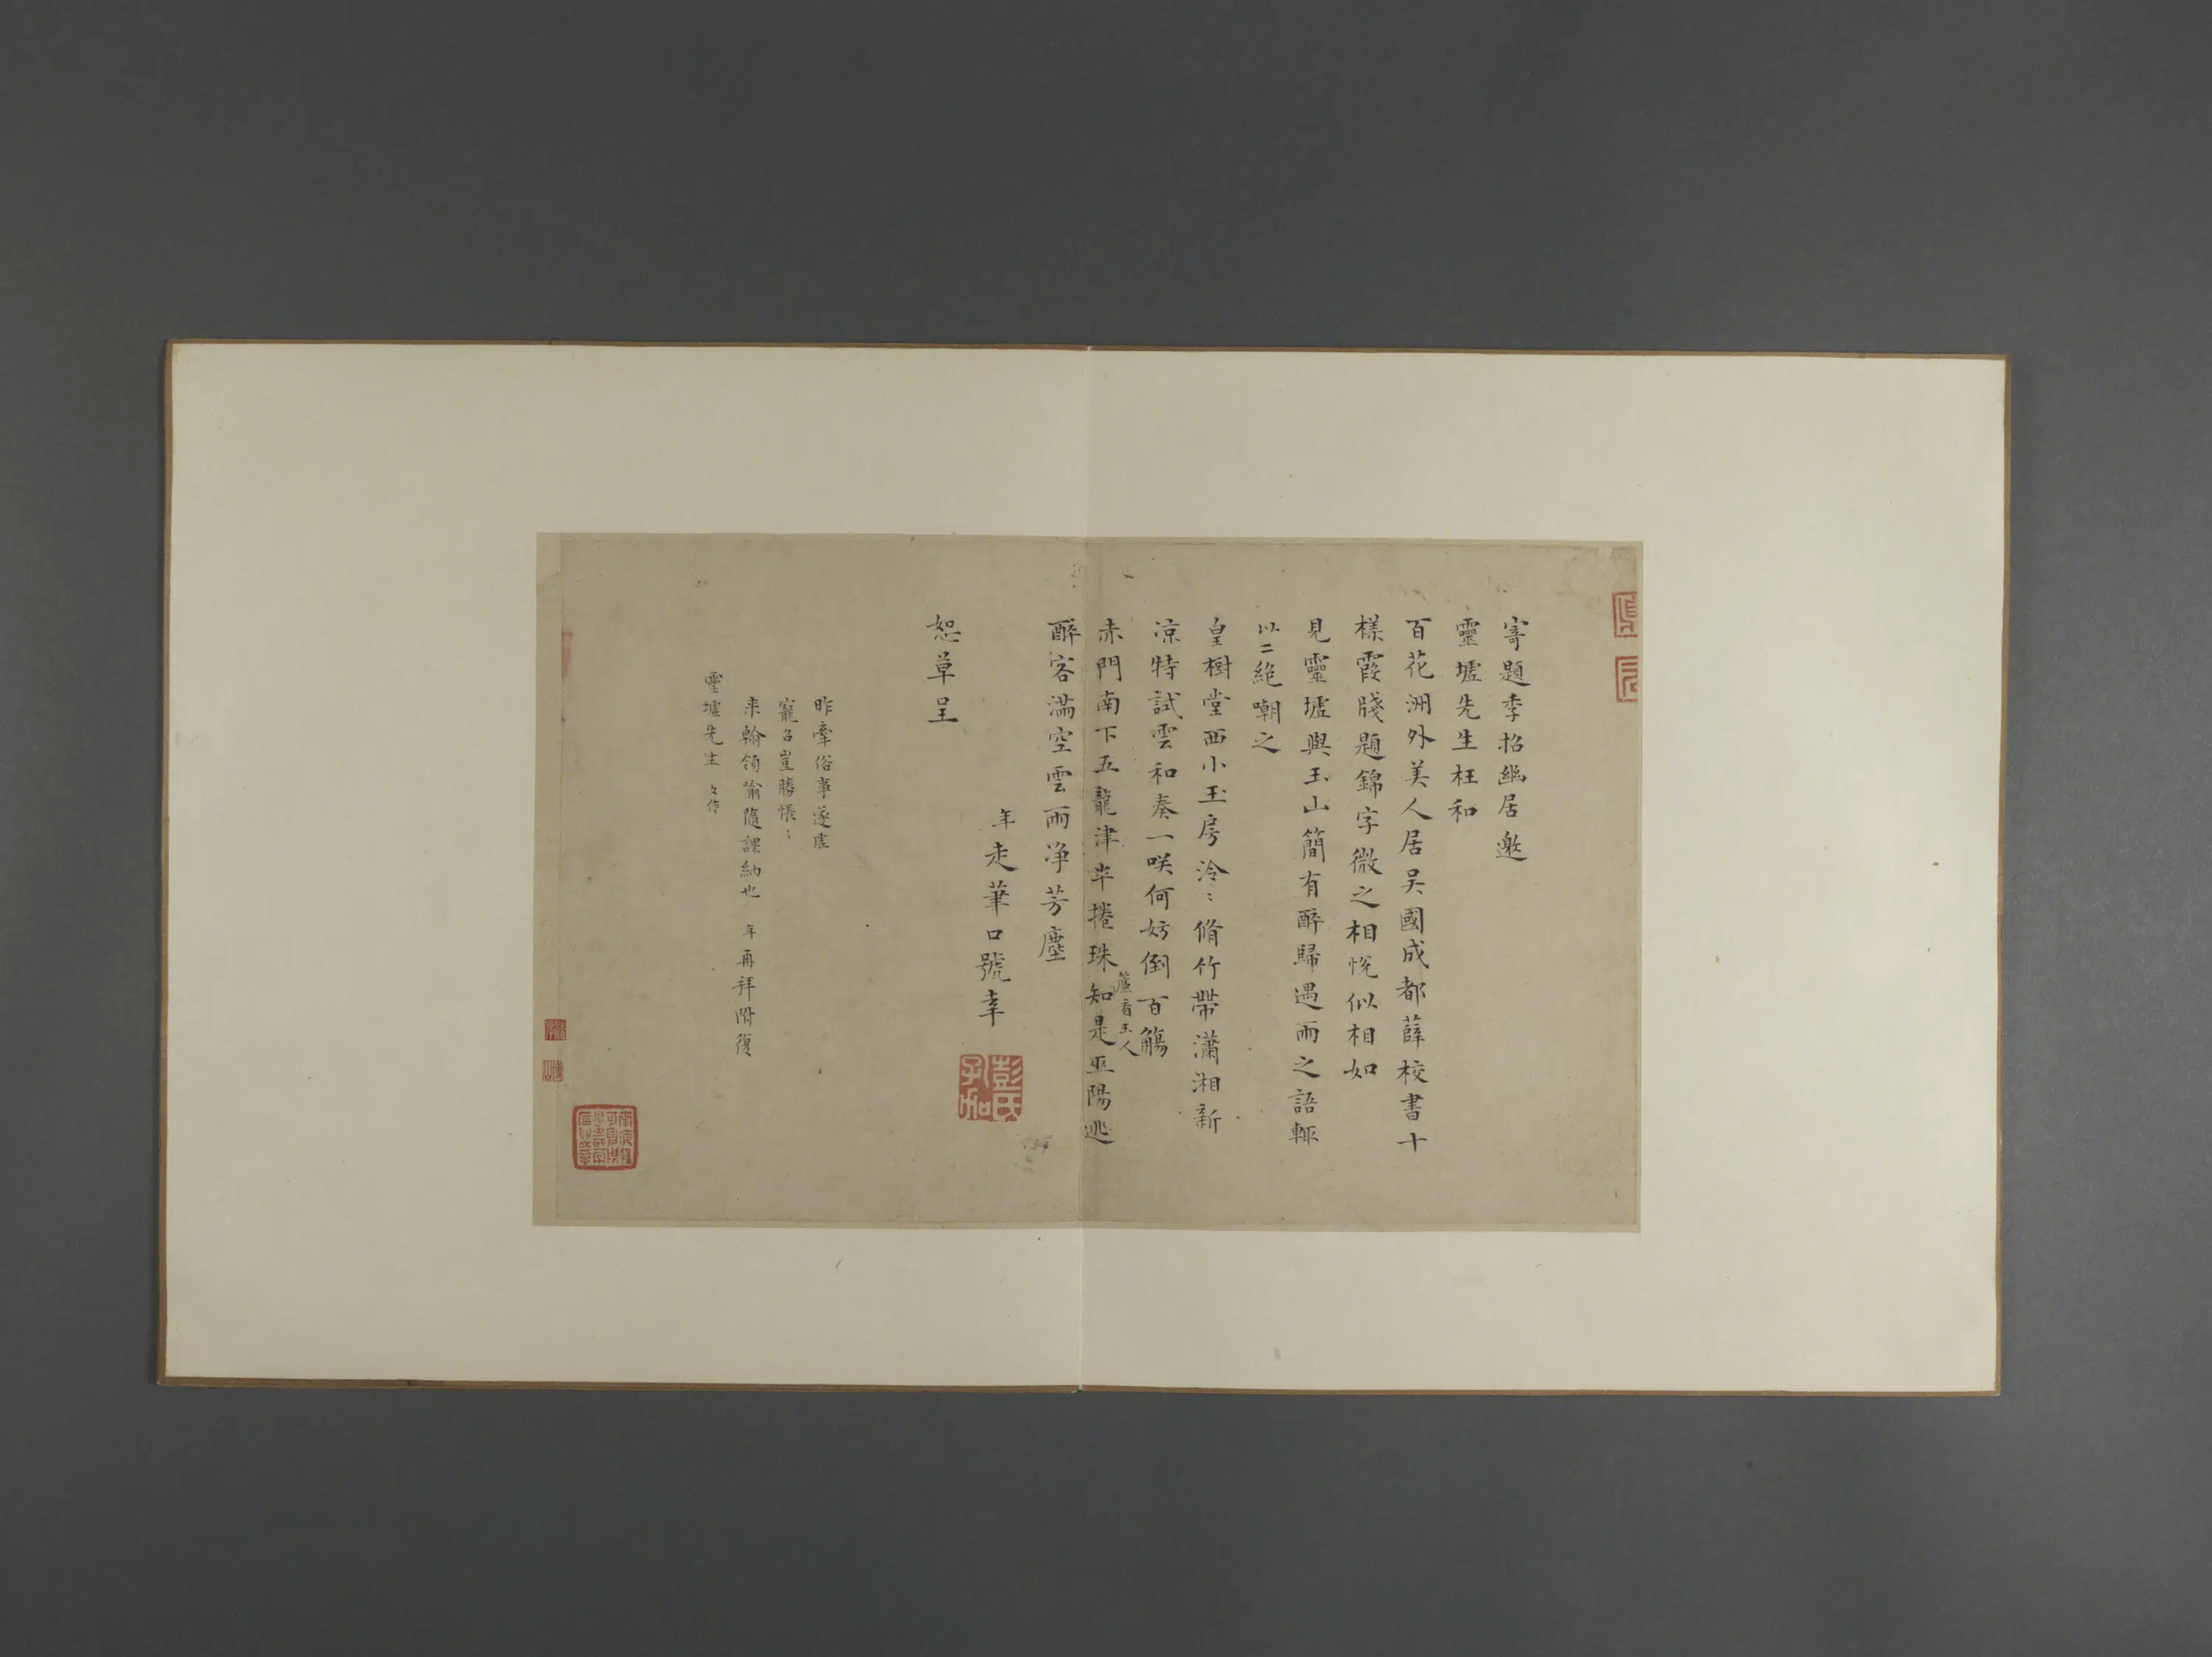 寄題季招幽居邀
靈墟先生枉和
百花洲外美人居吴國成都薛校書十
樣霞牋題錦字微之相悅似相如
見靈墟與玉山簡有醉歸遇雨之語輒
以二絶嘲之
皇樹堂西小玉房泠〻脩竹帶瀟湘新
凉特試雲和奏一咲何妨倒百觴
赤門南下五龍津半捲珠簾看玉人知是巫陽逃
醉客滿空雲雨净芳塵
年走筆口號幸
恕草呈
彭氏孔加
昨牽俗事遂虛
寵召豈勝悵〻
来翰領喻隨課納也 年再拜附復
靈墟先生